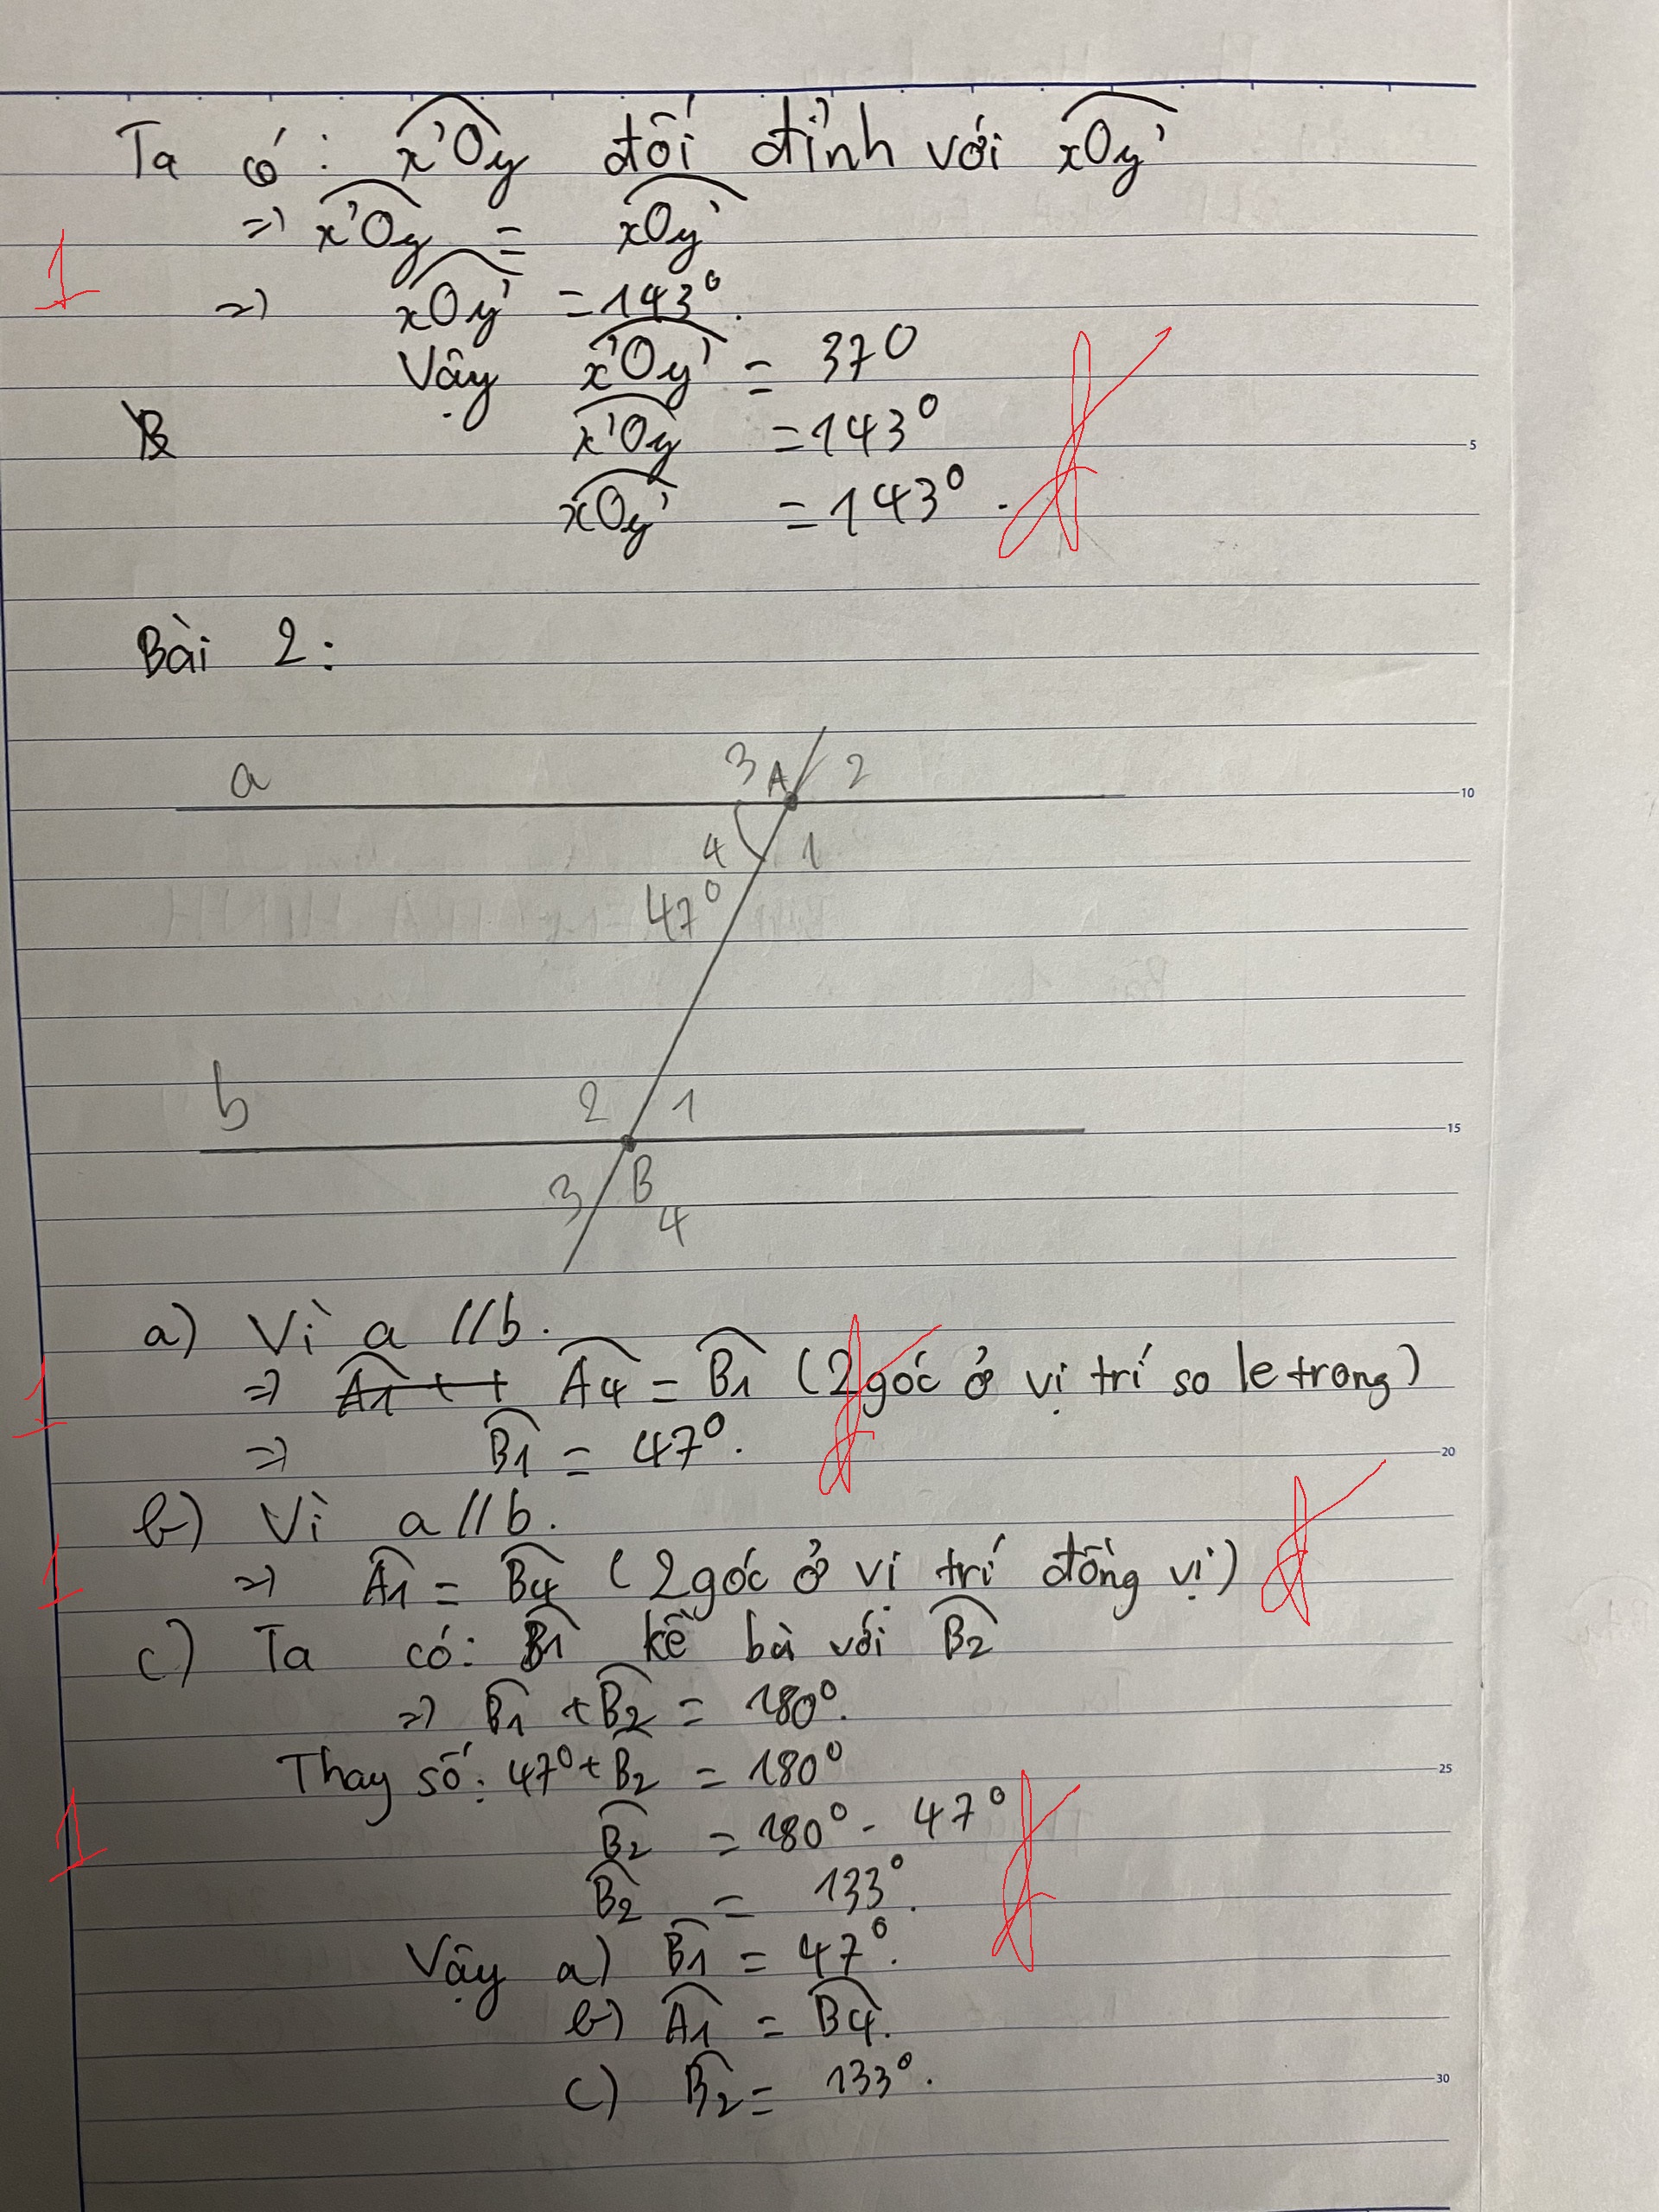 Ta có: x'Oy đối đỉnh với xOy'
=> x'Oy = xOy'
1
=> xOy' = 143°.
Vậy x'Oy' = 37°
x'Oy = 143°
5
xOy' = 143°.
Bài 2:
3 A 2
a
10
4 1
47°
b 2 1
15
3 B
4
a) Vì a // b.
=> A1 + + A4 = B1 (2 góc ở vị trí so le trong)
1
=> B1 = 47°.
20
b) Vì a // b.
=> A1 = B4 (2 góc ở vi trí đồng vị)
1
c) Ta có: B1 kề bà với B2
=> B1 + B2 = 180°.
Thay số: 47° + B2 = 180°
25
B2 = 180° - 47°
1
B2 = 133°.
Vậy a) B1 = 47°.
b) A1 = B4.
c) B2 = 133°.
30